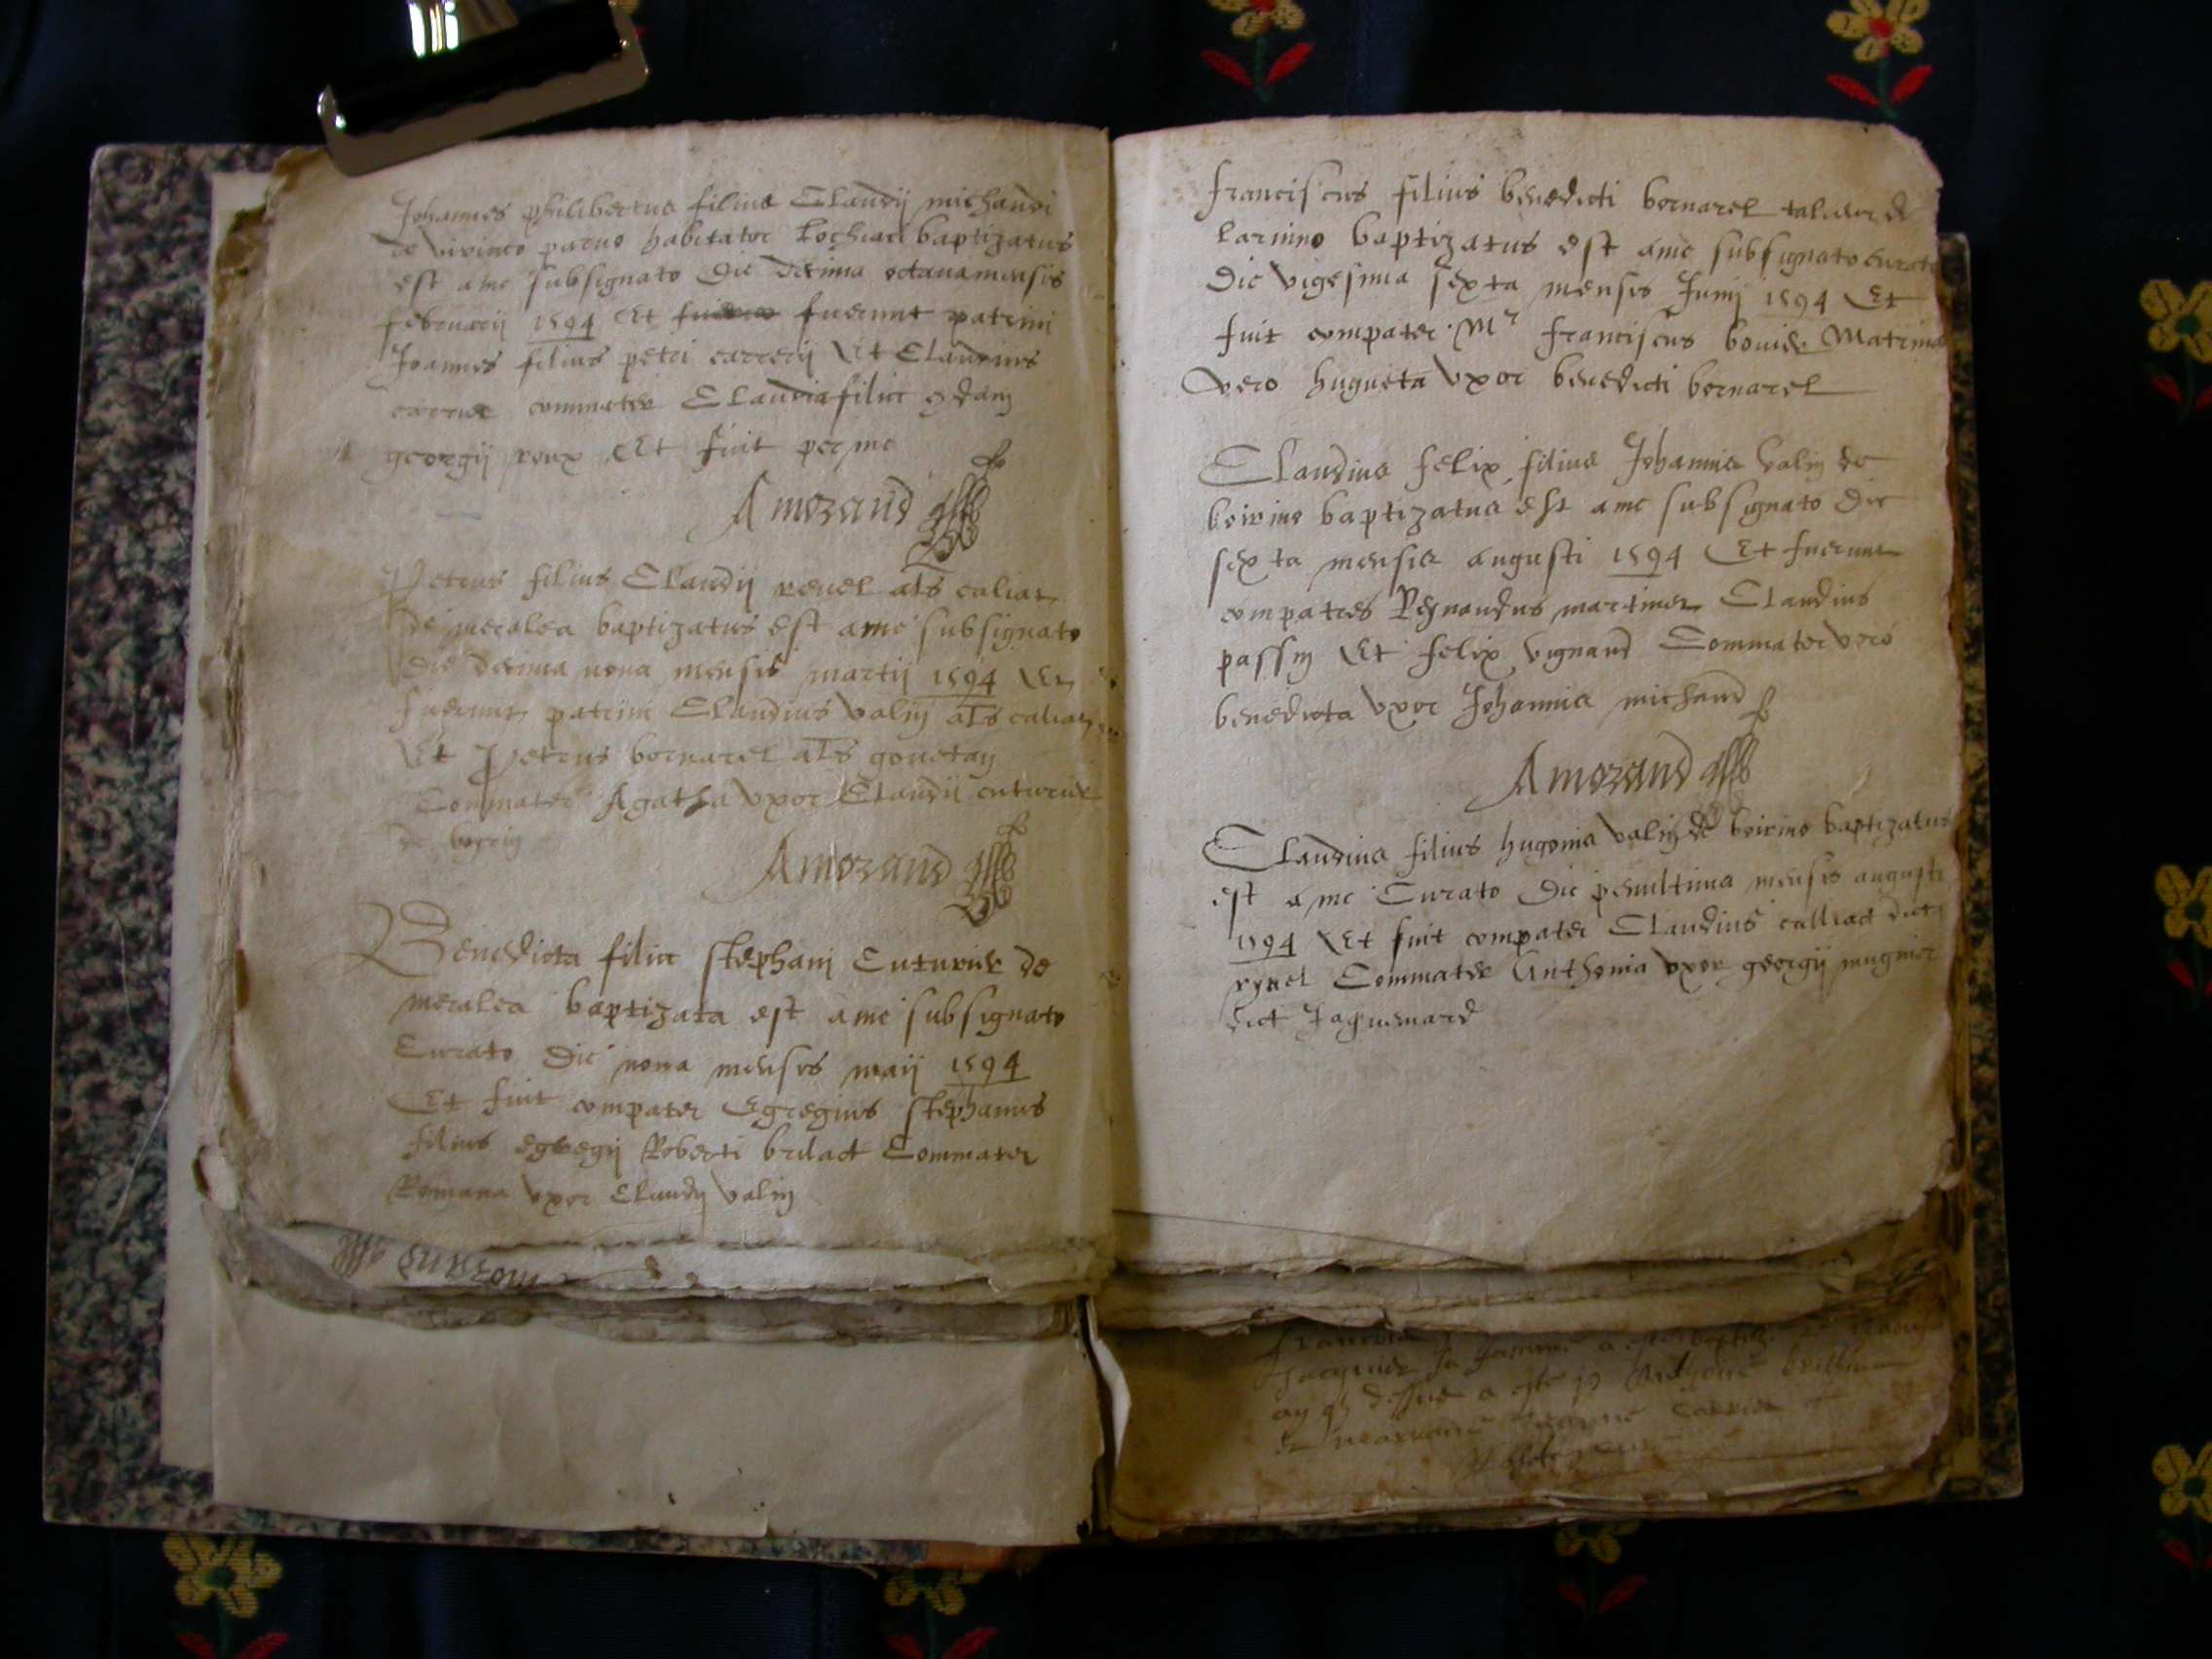 Johannes philibertus filius Claudij michaudi
de viriaco paruo habitator Lochiaci baptizatus
est a me subsignato die decima octaua mensis
februarij 1594 Et fuerunt patrini
Joannes filius petri carrerij Et Claudius
commater Claudia filia qdam
georgij roux Et fuit per me
Amorand
Petrus filius Claudij reuel als caliat
de meralea baptizatus est a me subsignato
die decima nona mensis martij 1594 Et
fuerunt patrini Claudius valin als caliat
Et Petrus bornarel als gouetan
Commater Agatha vxor Claudij cuturier
de
Amorand
Benedicta filia stephani Cuturier de
meralea baptizata est a me subsignato
Curato die nona mensis maij 1594
Et fuit compater Egregius stephanus
filius egregij Roberti brilact Commater
Romana vxor Claudij valin
franciscus filius benedicti bornarel
baptizatus est a me subsignato curato
die vigesima sexta mensis Junij 1594 Et
fuit compater Mr franciscus bouier Matrina
vero hugueta vxor benedicti bornarel
Claudius felix filius Johannis valin de
boirino baptizatus est a me subsignato die
sexta mensis augusti 1594 Et fuerunt
compatres Reynaudus martinet Claudius
passin Et felix vignaud Commater vero
benedicta vxor Johannis michaud
Amorand
Claudius filius hugonis valin de boirino baptizatus
est a me Curato die penultima mensis augusti
1594 Et fuit compater Claudius calliact dict
reuel Commater Anthonia vxor georgij mugnier
dict Jaquemard